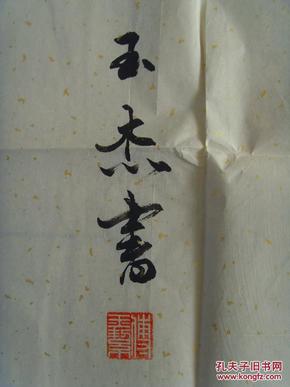 玉杰書
孔夫子旧书网
KONGFZ.COM